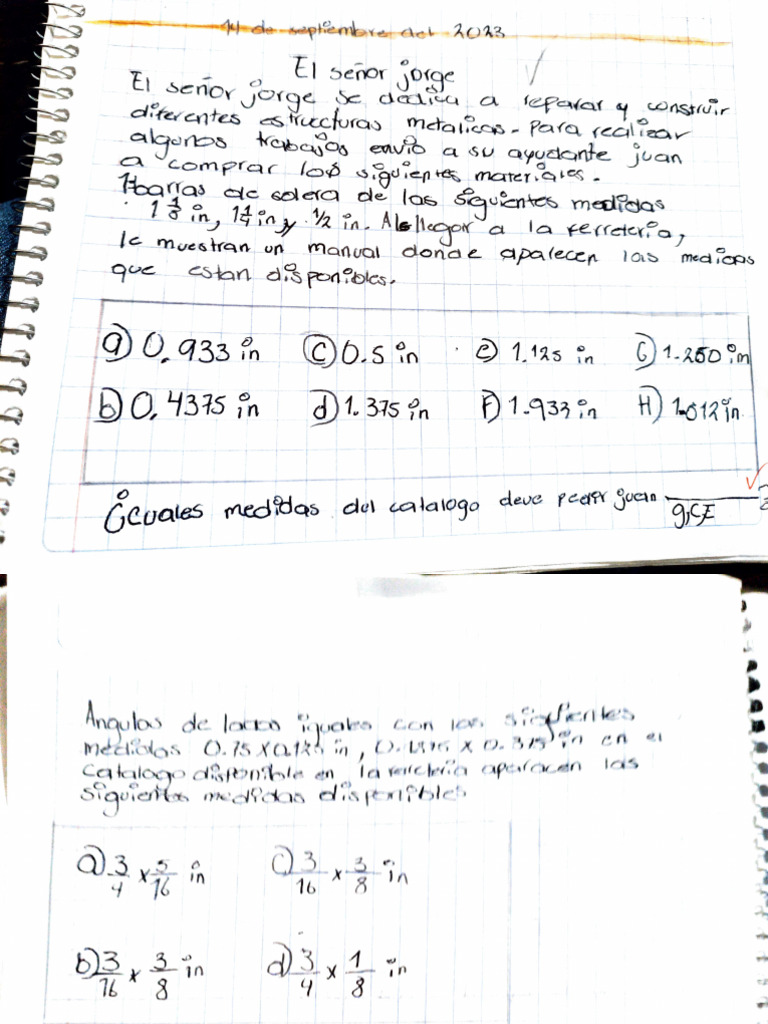 14 de septiembre del 2023
El señor jorge
El señor jorge se dedica a reparar y construir
diferentes estructuras metalicas. Para realizar
algunos trabajos envio a su ayudante juan
a comprar los siguientes materiales.
1 barras de solera de las siguientes medidas
1 1/8 in, 1 1/4 in y 1/2 in. Al llegar a la ferreteria,
le muestran un manual donde aparecen las medidas
que estan disponibles.
a) 0.933 in c) 0.5 in e) 1.125 in G) 1.250 in
b) 0.4375 in d) 1.375 in F) 1.933 in H) 1.012 in
¿cuales medidas del catalogo deve pedir juan
g,C,E
Angulos de lados iguales con las siguientes
medidas 0.75 x 0.125 in, x 0.375 in en el
catalogo disponible en la aparacen las
siguientes medidas disponibles
a) 3/4 x 5/16 in c) 3/16 x 3/8 in
b) 3/16 x 3/8 in d) 3/4 x 1/8 in